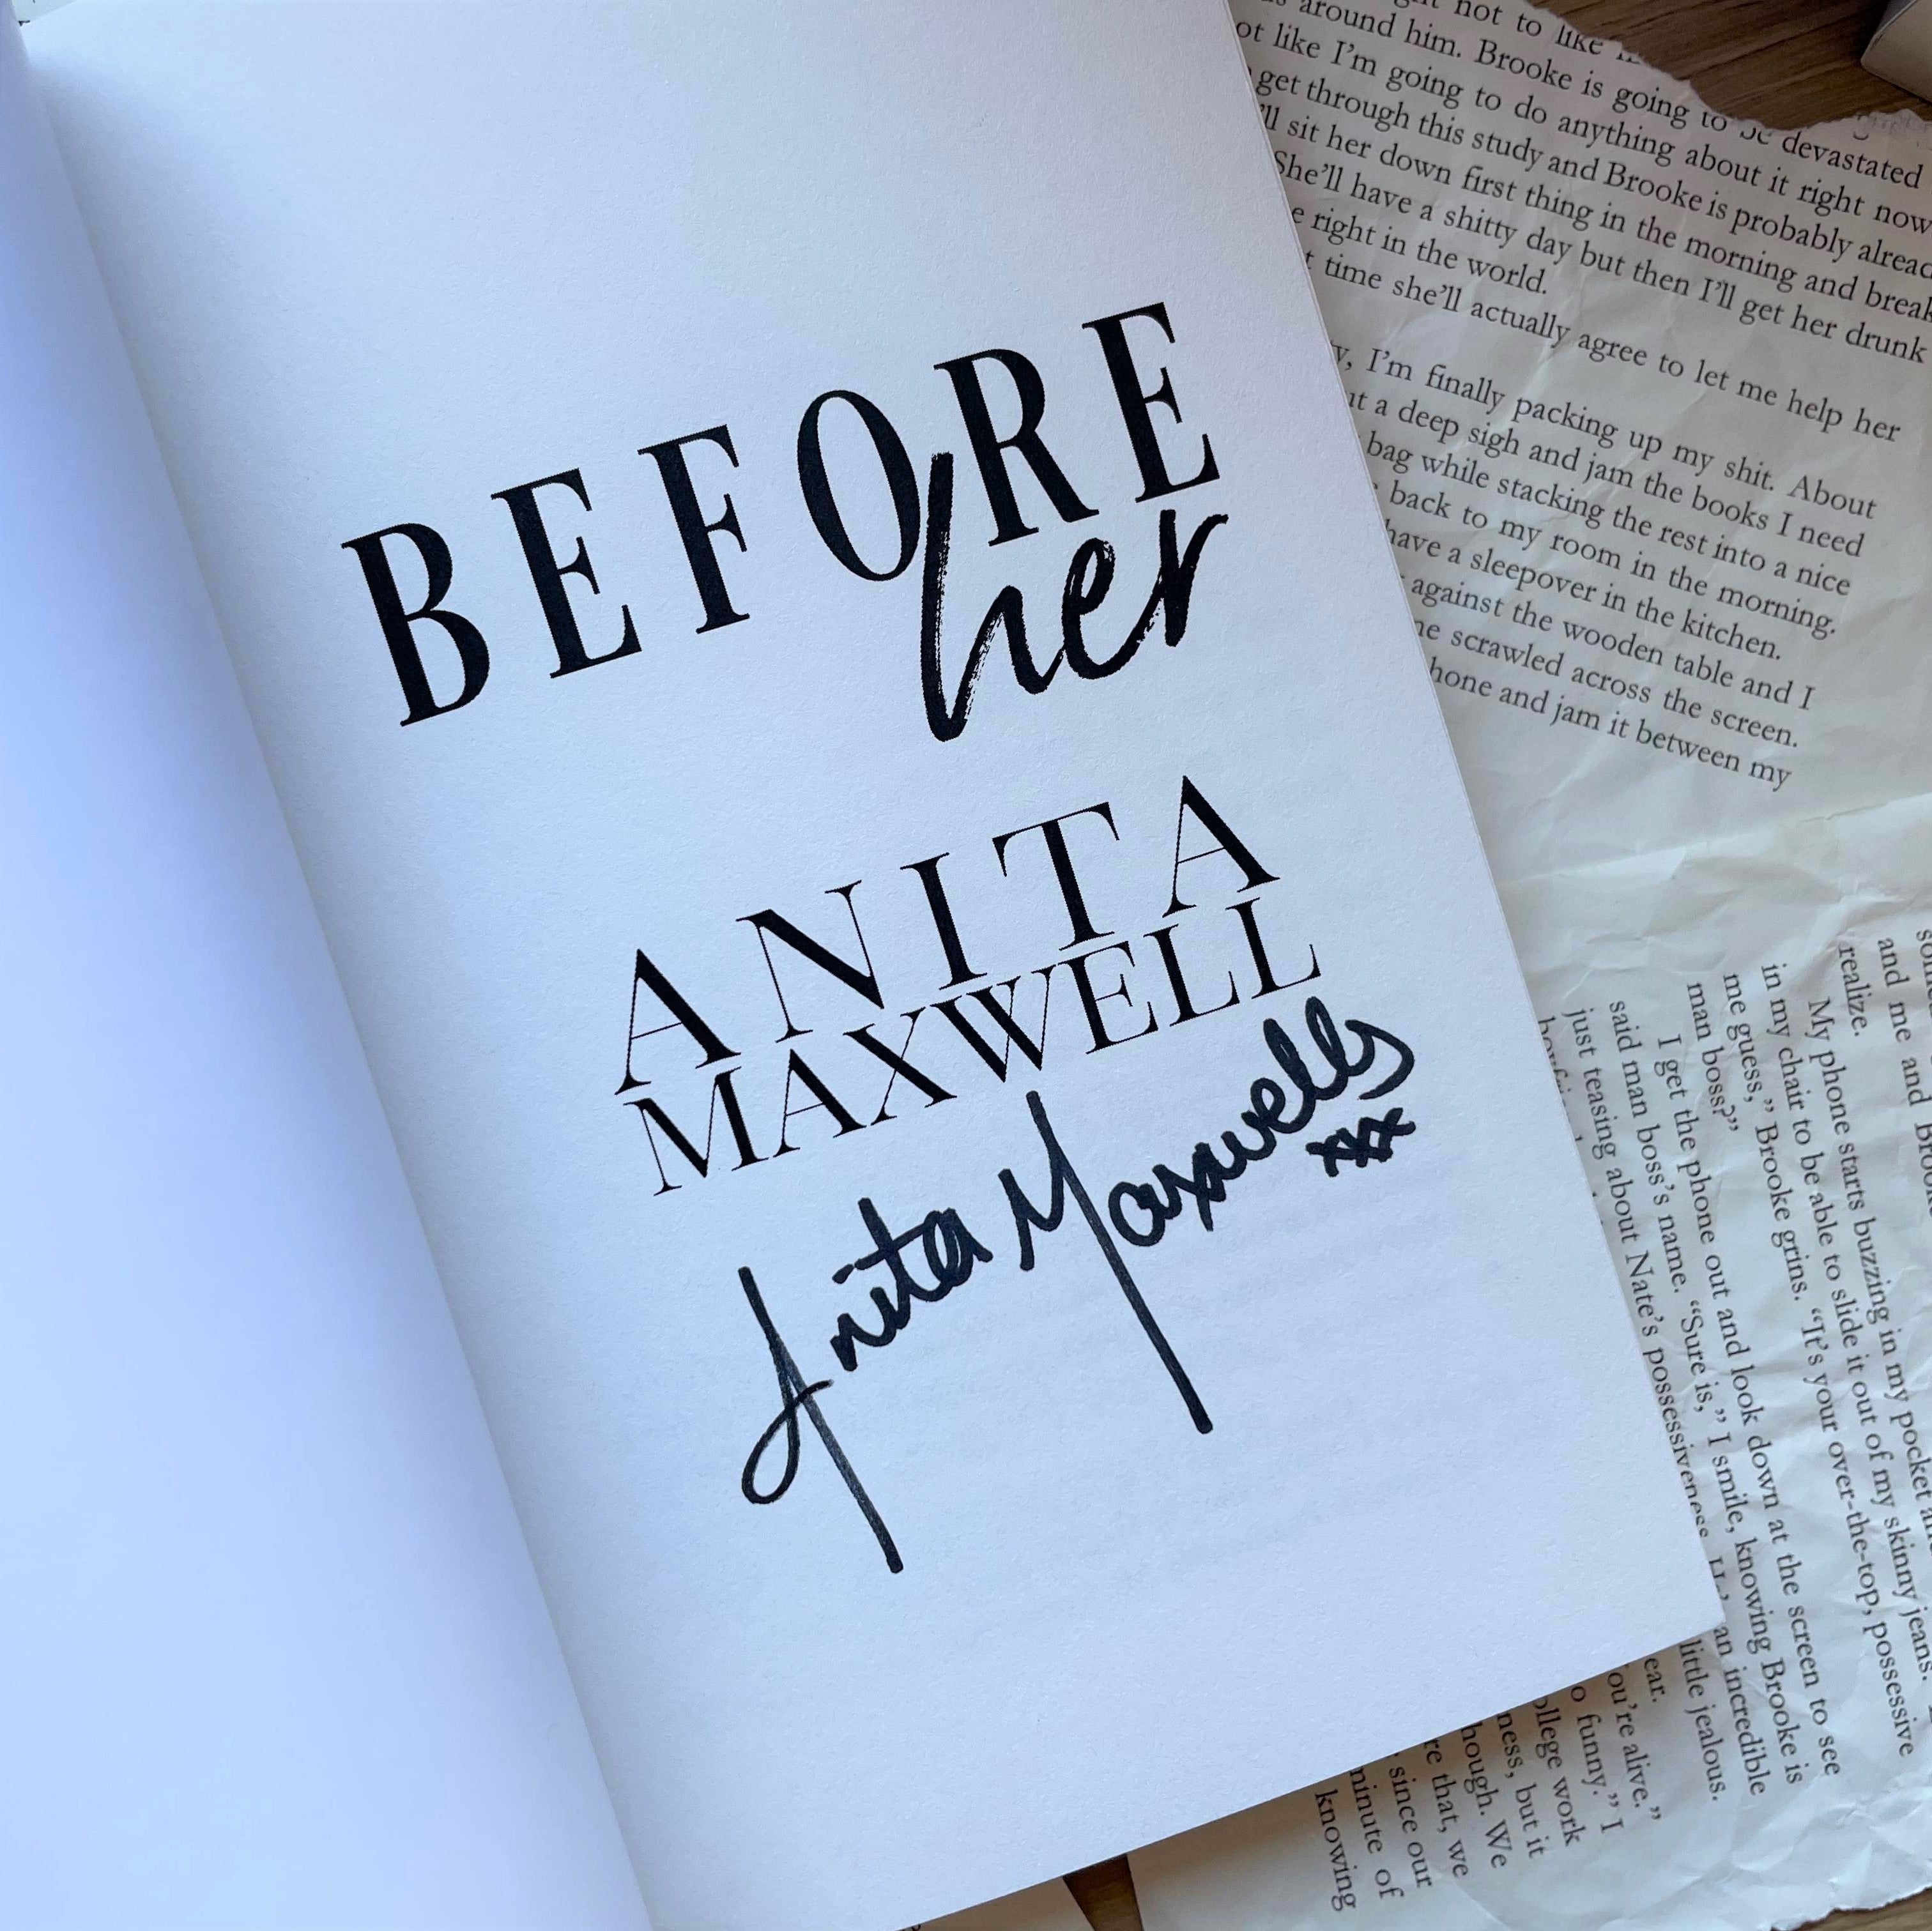 BEFORE
her
ANITA
MAXWELL
Anita Maxwells
xxx
not to like
around him. Brooke is going to be devastated
like I'm going to do anything about it right now
get through this study and Brooke is probably
'll sit her down first thing in the morning and break
She'll have a shitty day but then I'll get her drunk
right in the world.
time she'll actually agree to let me help her
I'm finally packing up my shit. About
a deep sigh and jam the books I need
bag while stacking the rest into a nice
back to my room in the morning.
have a sleepover in the kitchen.
against the wooden table and I
scrawled across the screen.
and jam it between my
and me and
realize.
My phone starts buzzing in my pocket
in my chair to be able to slide it out of my skinny jeans.
me guess," Brooke grins. "It's your over-the-top, possessive
man boss?"
I get the phone out and look down at the screen to see
said man boss's name. "Sure is," I smile, knowing Brooke is
just teasing about Nate's possessiveness. an incredible
little jealous.
ear.
you're alive."
funny." I
college work
but it
though. We
that, we
since our
minute of
knowing